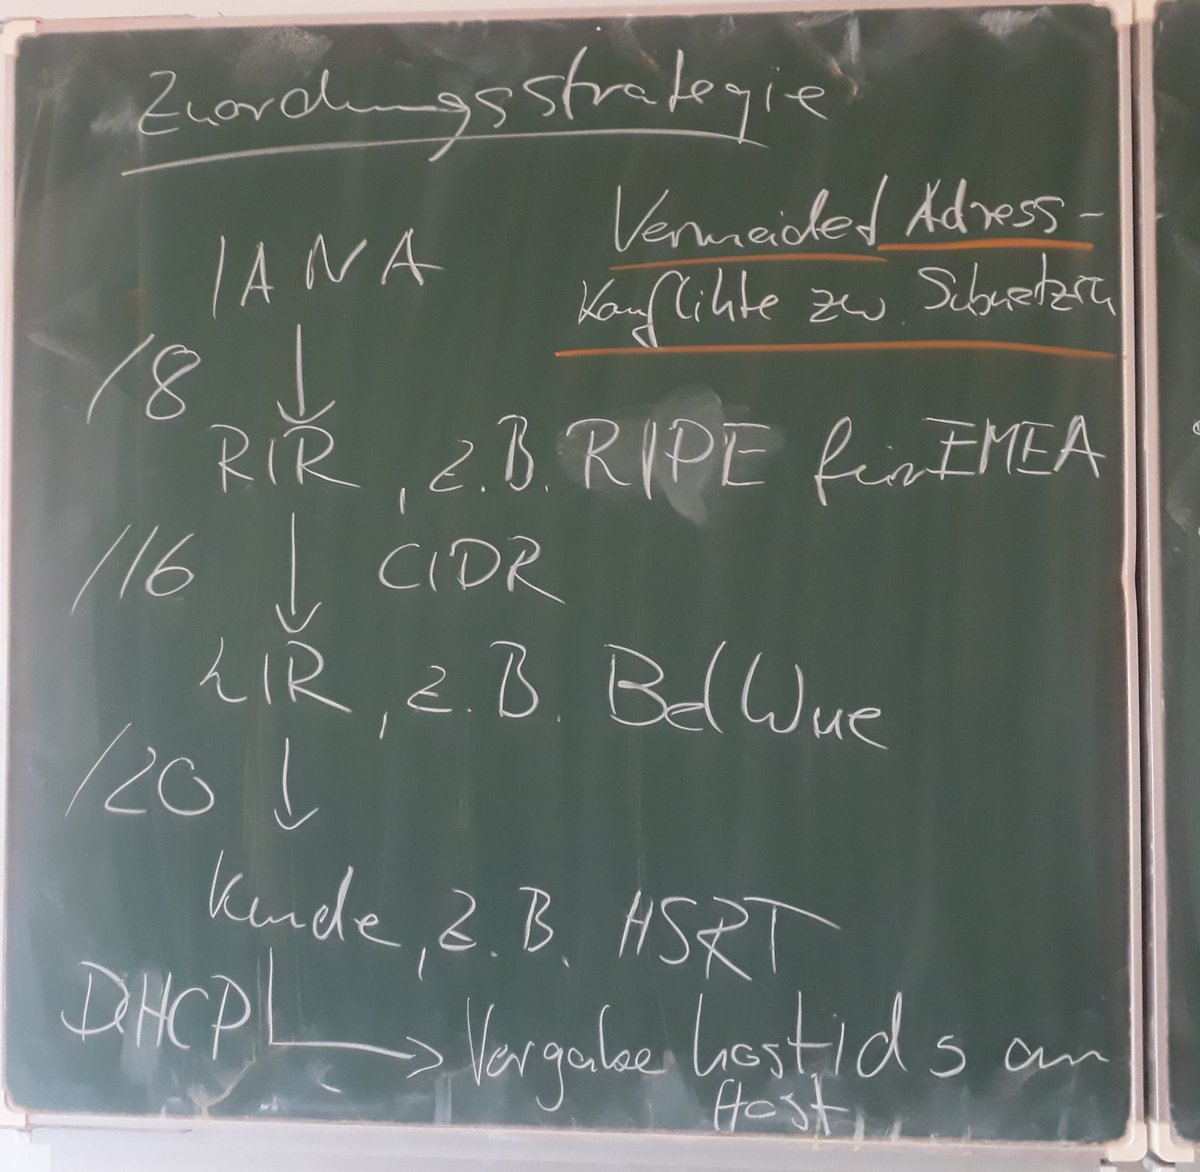 Zuordnungsstrategie
Vermeidet Adress-
Konflikte zw. Subnetzen
IANA
/8
RIR, z.B. RIPE für EMEA
/16 CIDR
LIR, z.B. BelWue
/20
Kunde, z.B. HSRT
DHCP
Vergabe hostids an
Host